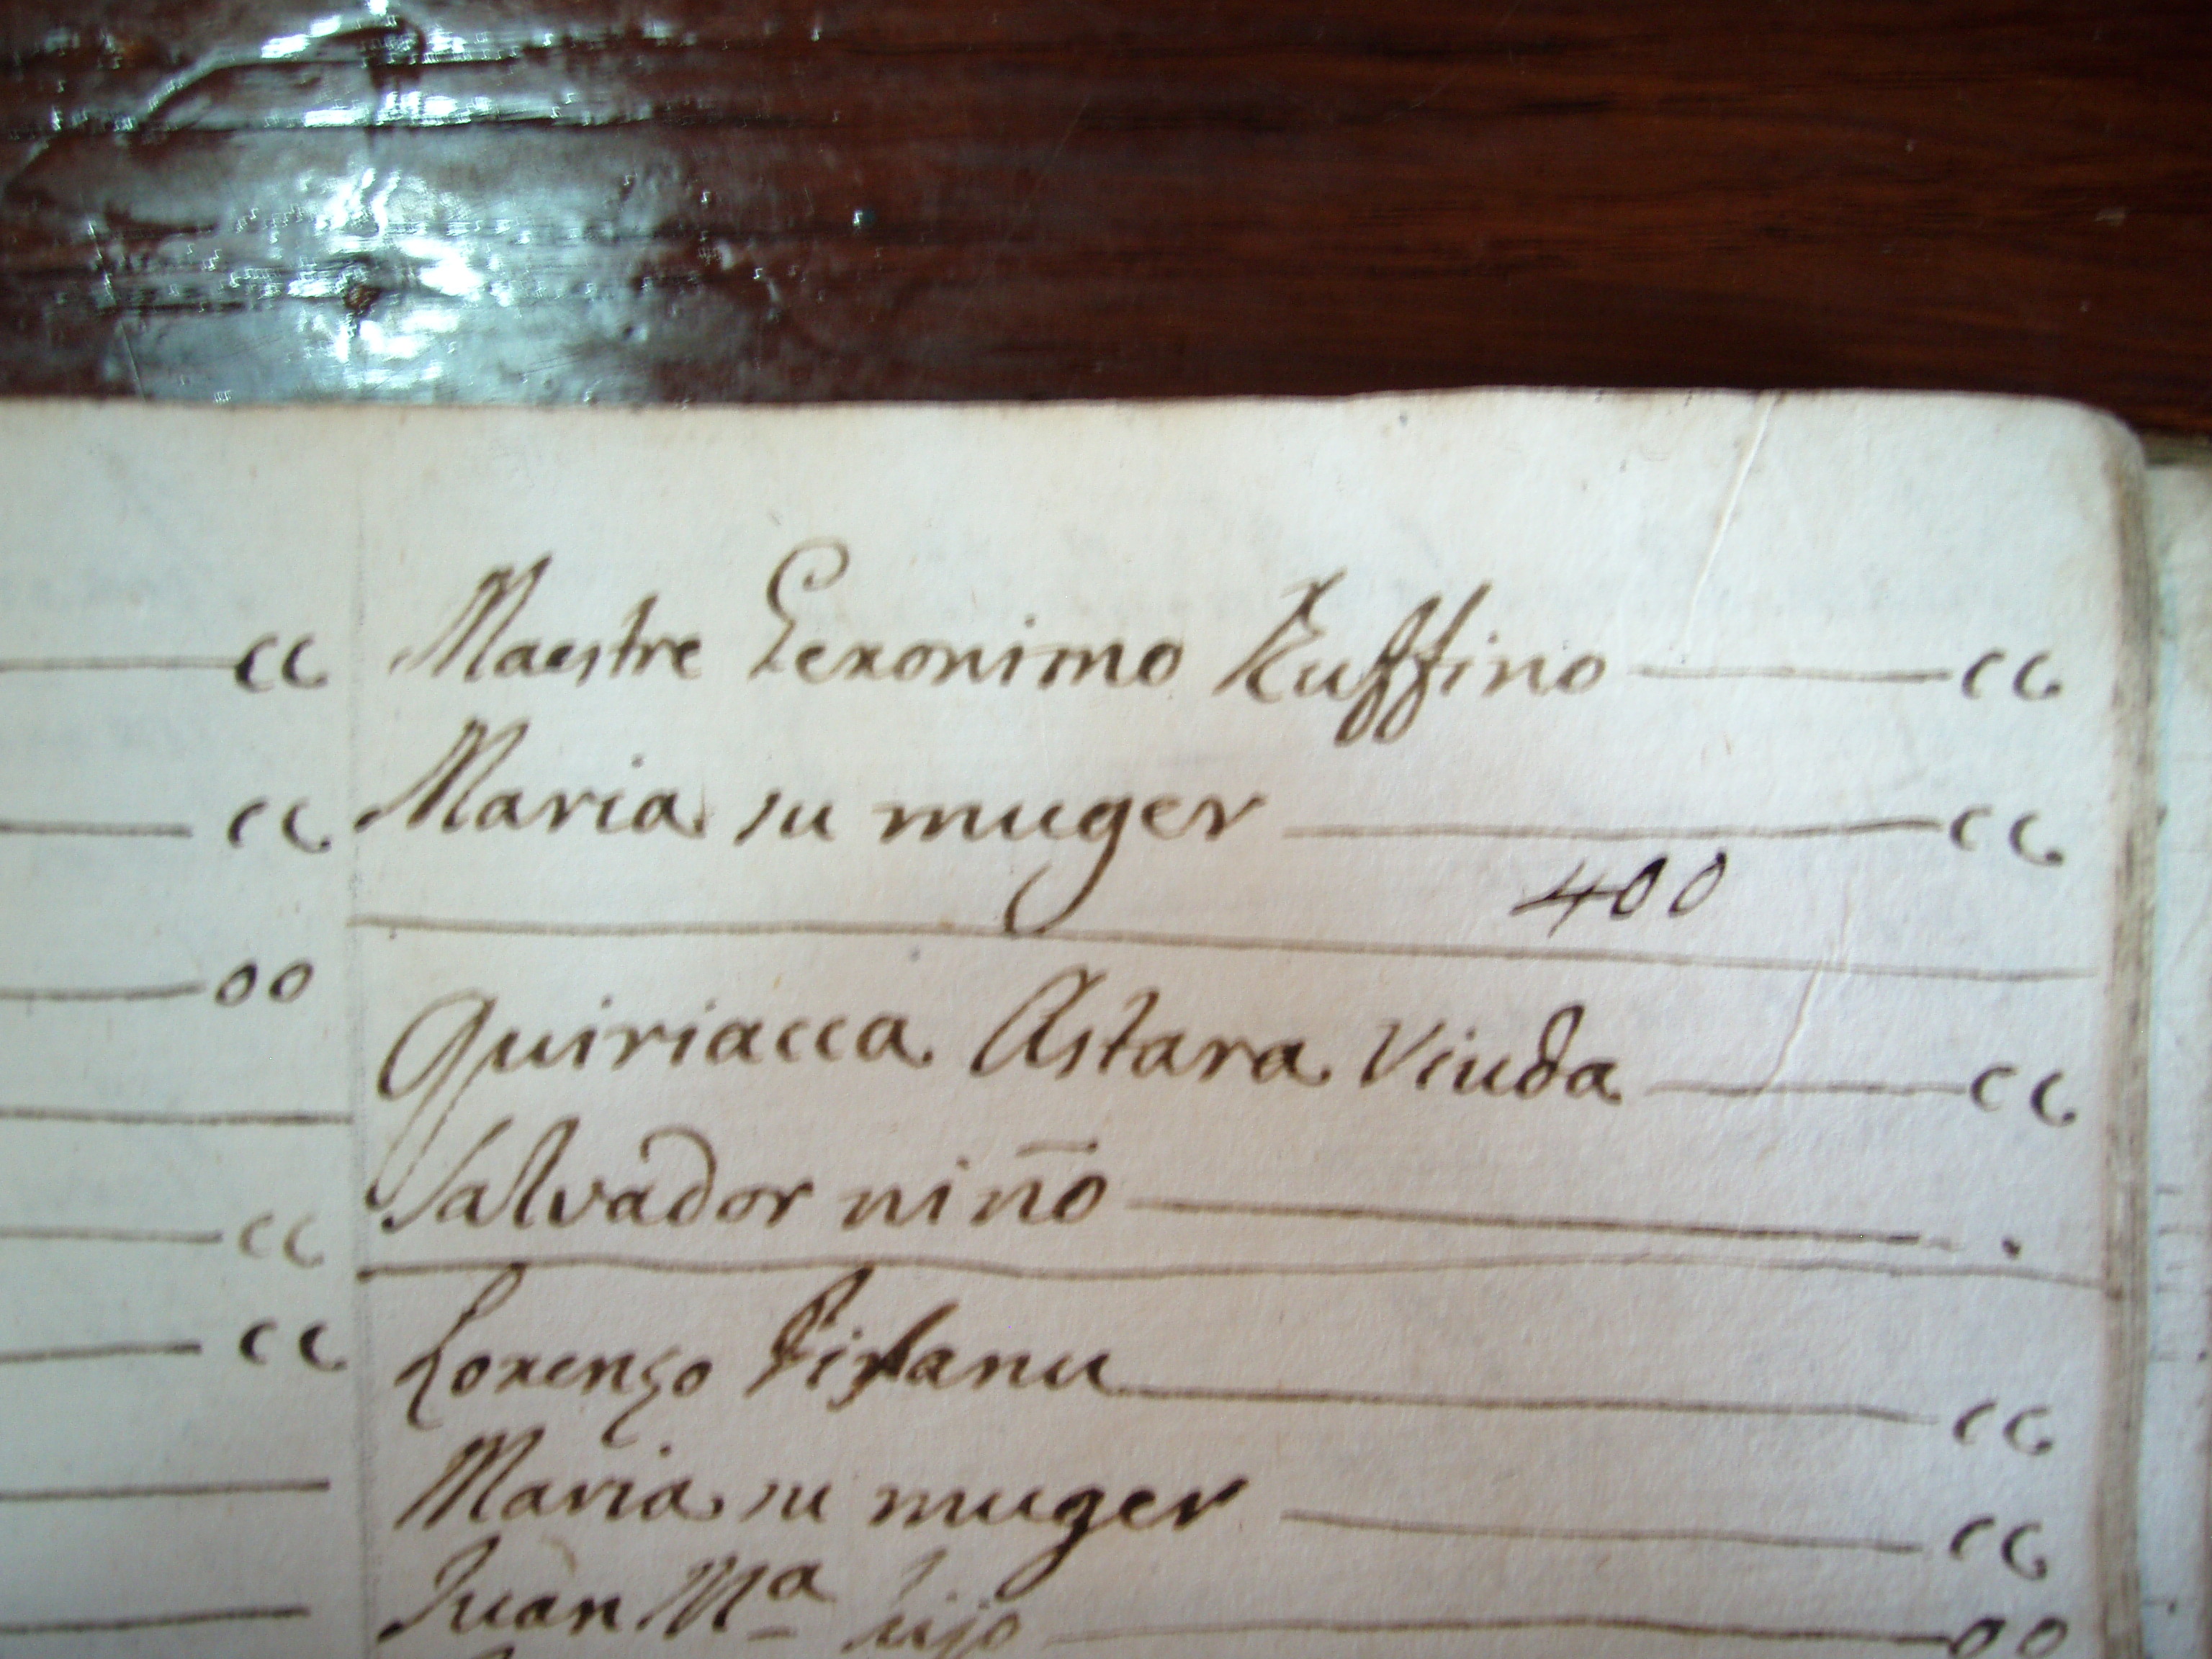 cc
cc
oo
cc
cc
Maestre Geronimo Ruffino cc
Maria su muger cc
400
Quiriacca Astara Viuda cc
Salvador niño .
Lorenzo cc
Maria su muger cc
Juan Mª hijo oo